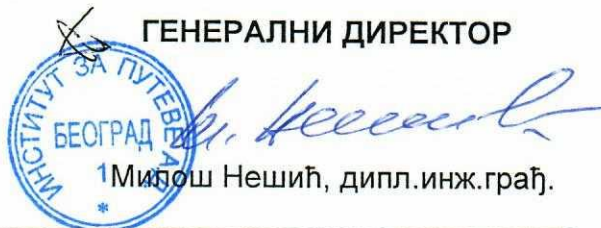 ГЕНЕРАЛНИ ДИРЕКТОР
ИНСТИТУТ ЗА ПУТЕВЕ АД
БЕОГРАД
1
Милош Нешић, дипл.инж.грађ.